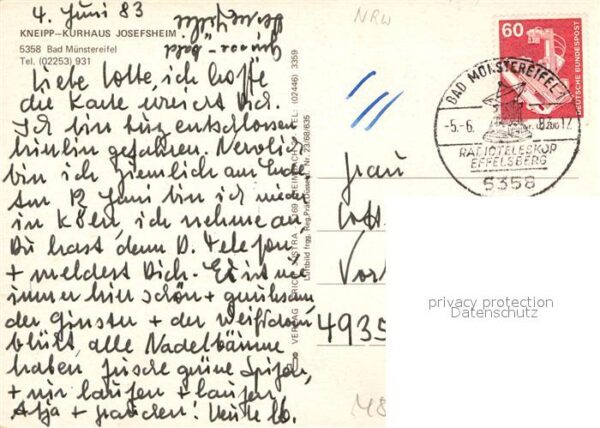 4. Juni 83
KNEIPP-KURHAUS JOSEFSHEIM
5358 Bad Münstereifel
Tel. (02253) 931
Liebe Lotte, ich hoffe
die Karte erreicht Dich.
Ich bin kurz entschlossen
hierhin gefahren. Nervlich
bin ich ziemlich am Ende.
Am 12 Juni bin ich wieder
in Köln, ich nehme an
Du hast dann D. Telefon
+ meldest Dich. Es ist wie
immer hier schön + geruhsam,
der Ginster + der Weißdorn
blüht, alle Nadelbäume
haben frische grüne Spitzen,
+ wir laufen + laufen
Anja + Grüsse - bald
NRW
60
DEUTSCHE BUNDESPOST
BAD MÜNSTEREIFEL 1
-5.-6. 83.-17
RADIOTELESKOP
EFFELSBERG
5358
Frau
Lott
Vor
4935
privacy protection
Datenschutz